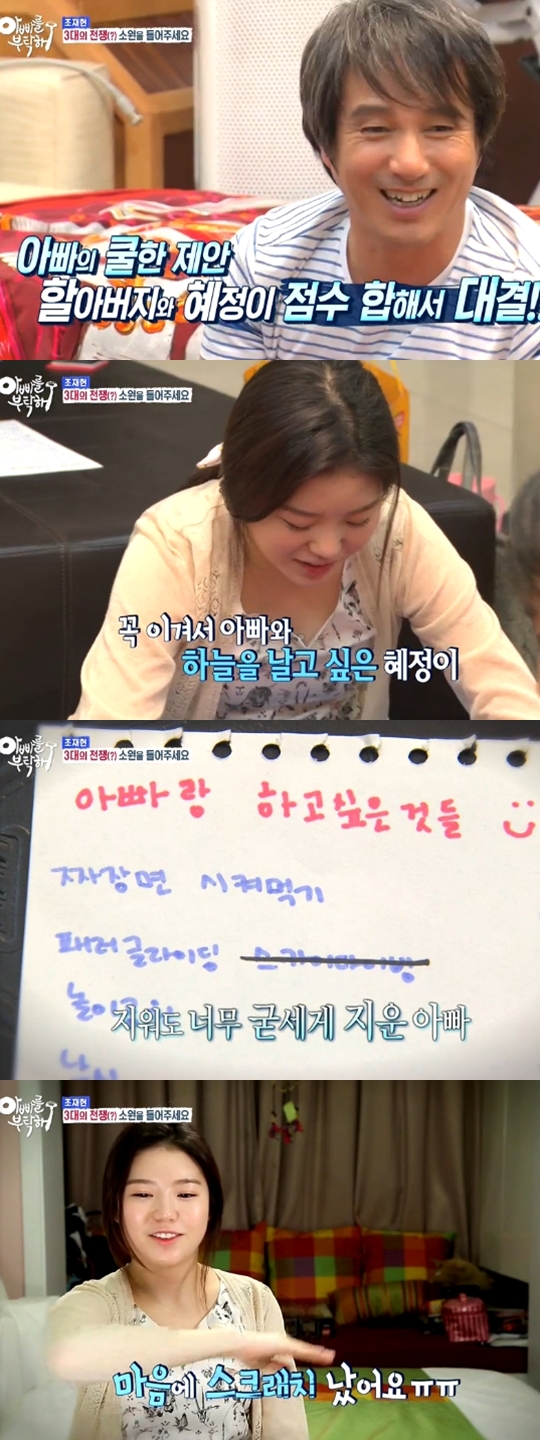 아빠를
부탁해
조재현
3대의 전쟁(?) 소원을 들어주세요
아빠의 쿨한 제안
할아버지와 혜정이 점수 합해서 대결!
아빠를
부탁해
조재현
3대의 전쟁(?) 소원을 들어주세요
꼭 이겨서 아빠와
하늘을 날고 싶은 혜정이
아빠를
부탁해
조재현
3대의 전쟁(?) 소원을 들어주세요
아빠랑 하고싶은 것들
짜장면 시켜먹기
패러글라이딩 스카이다이빙
지워도 너무 굳세게 지운 아빠
아빠를
부탁해
조재현
3대의 전쟁(?) 소원을 들어주세요
마음에 스크래치 났어요ㅠㅠ